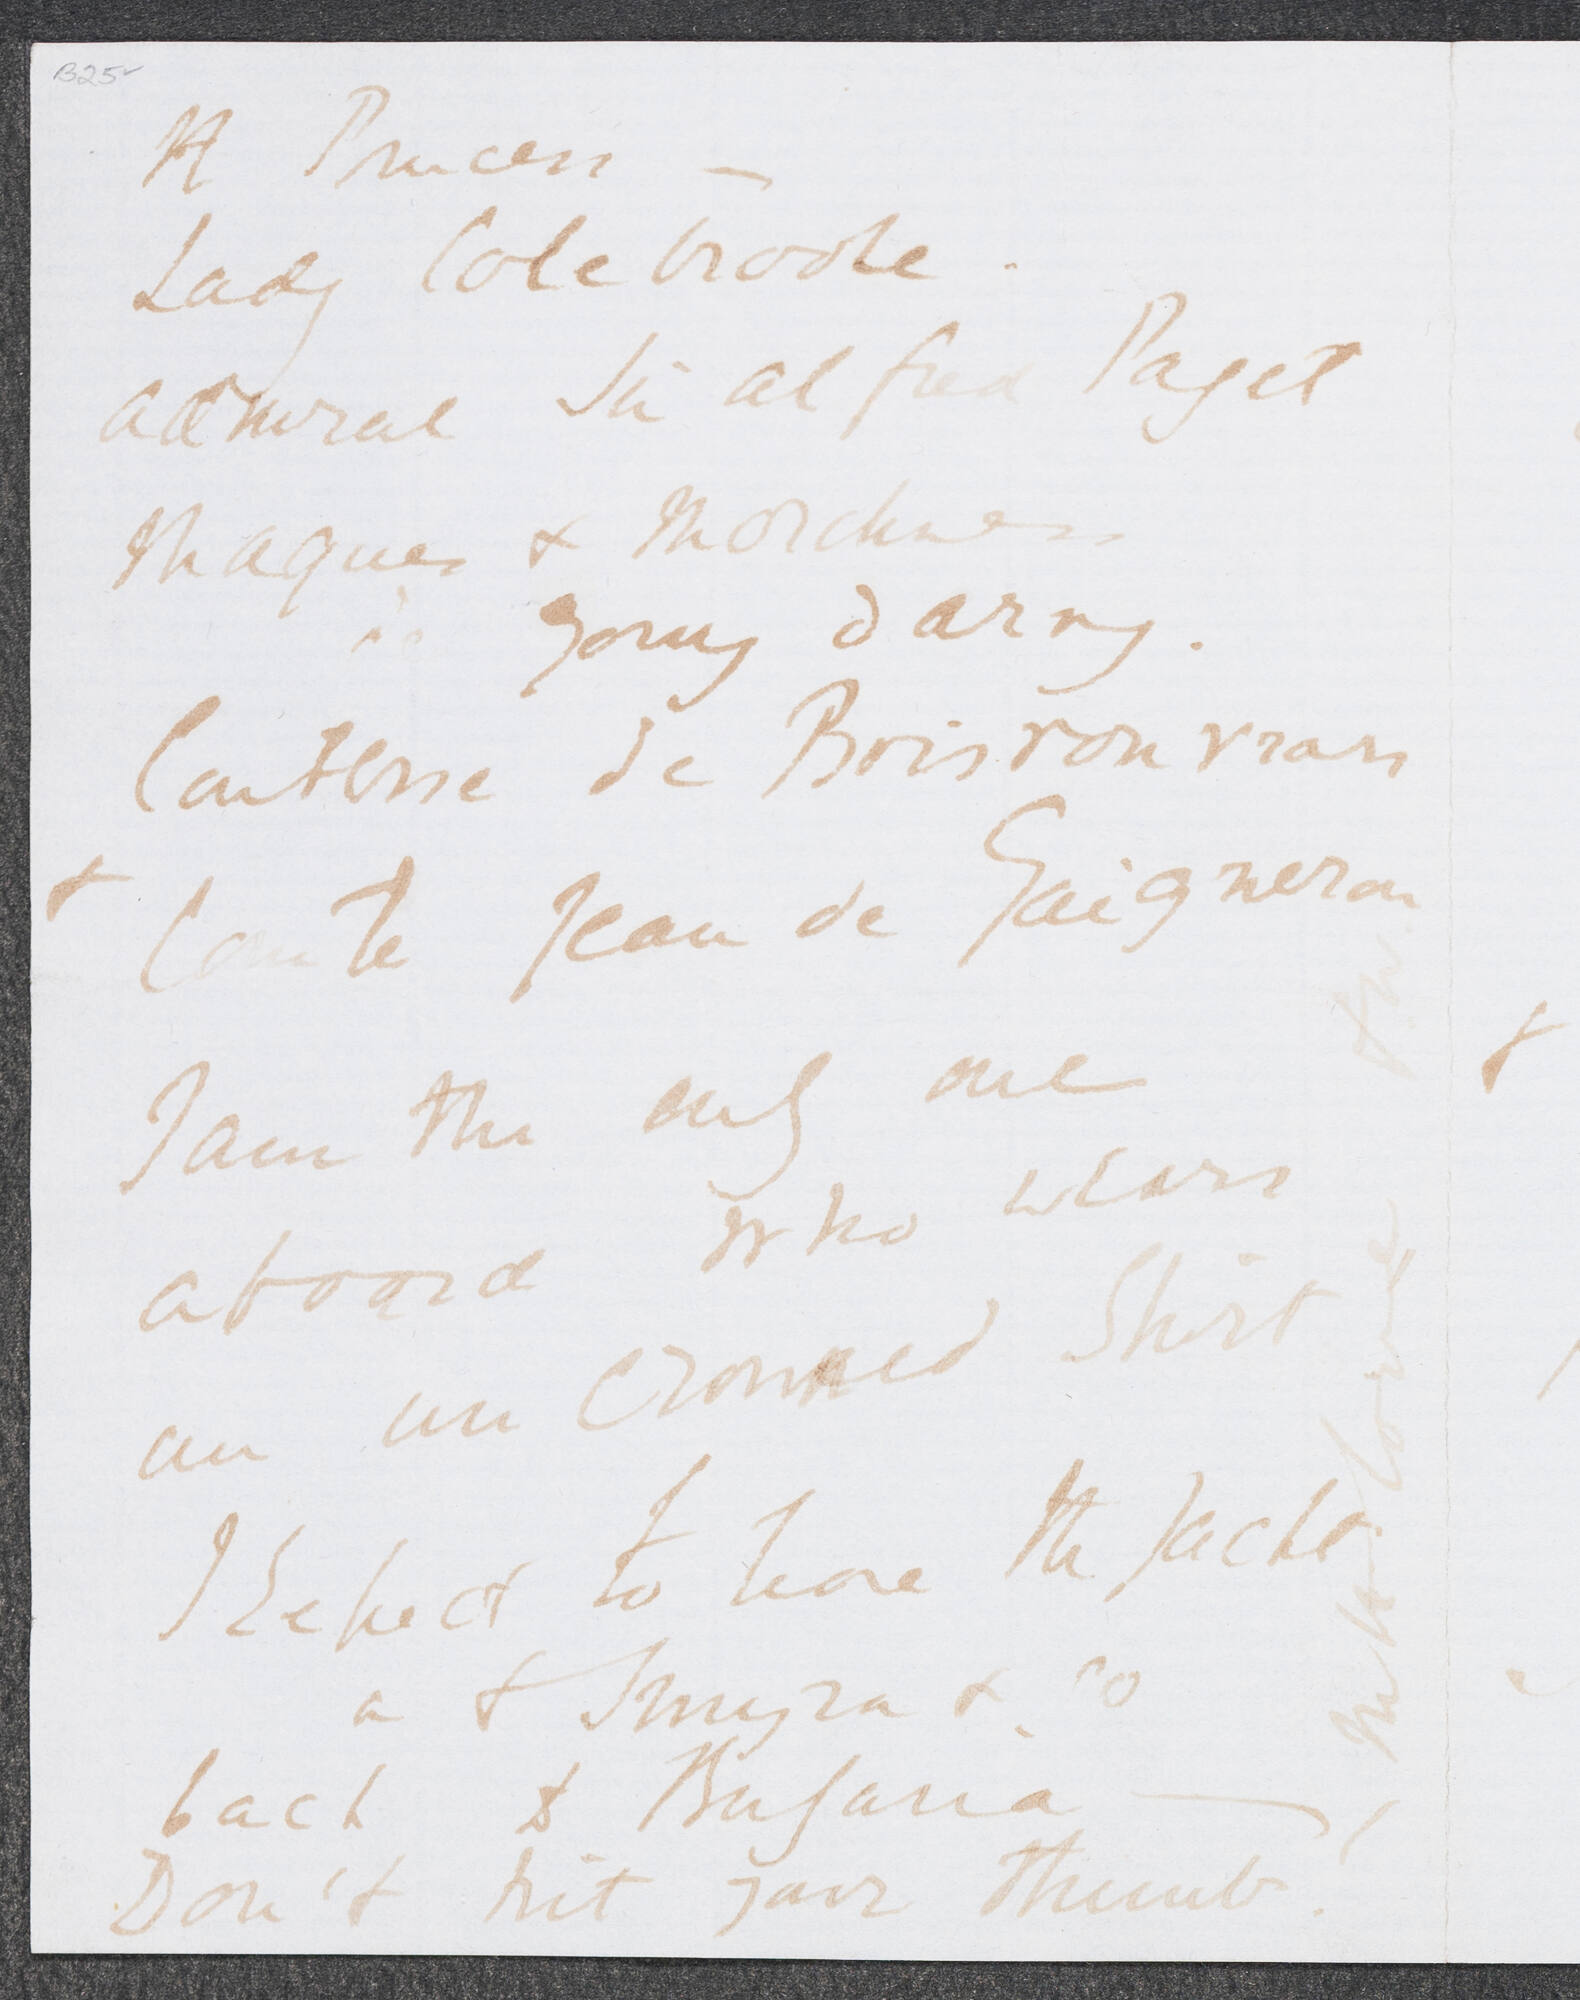 B25v
H Princess —
Lady Colebrooke.
Admiral Sir Alfred Paget
Maques & Morchness
Comtesse de
Comte Jean de Gaigneron
I am the only one
aboard who wears
an uncrowned shirt
I Expect to leave the Yacht
at Smyrna & go
back to Bulgaria —
Don't hit your thumb.